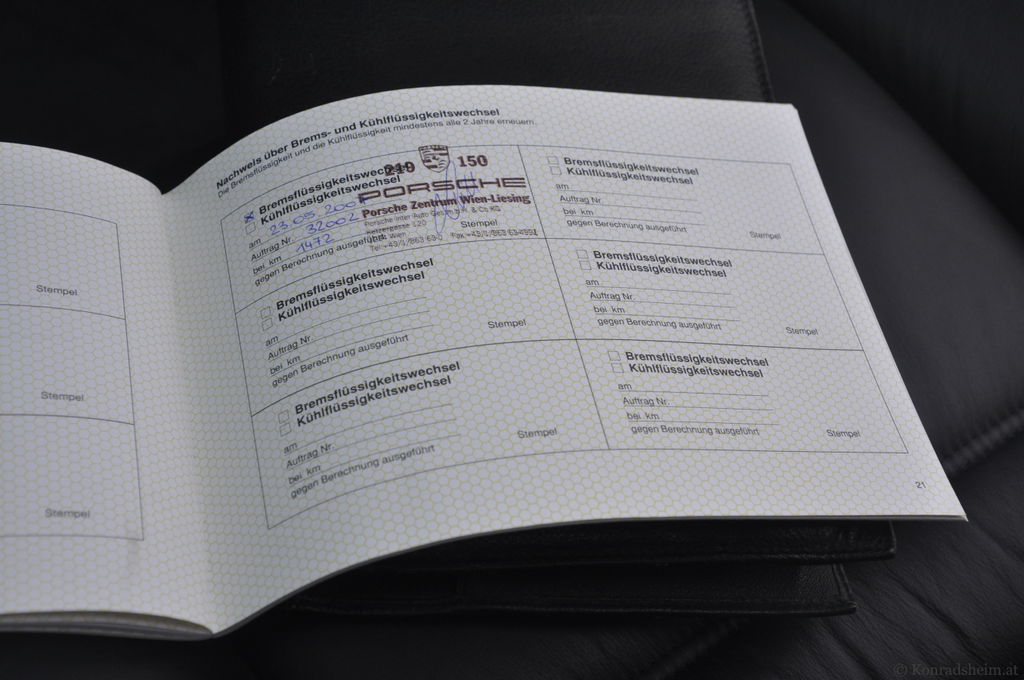 Nachweis über Brems- und Kühlflüssigkeitswechsel
Die Bremsflüssigkeit und die Kühlflüssigkeit mindestens alle 2 Jahre erneuern.
Bremsflüssigkeitswechsel
Kühlflüssigkeitswechsel
am 23.05.200
Auftrag Nr. 32002
bei km 1472
gegen Berechnung ausgeführt
Stempel
219 150
PORSCHE
Porsche Zentrum Wien-Liesing
Porsche Inter Auto Ges.m.b.H. & Co KG
Ketzergasse 120
Wien
Tel.+43/1/863 63-0 Fax+43/1/863 63-4991
Bremsflüssigkeitswechsel
Kühlflüssigkeitswechsel
am
Auftrag Nr.
bei km
gegen Berechnung ausgeführt
Stempel
Bremsflüssigkeitswechsel
Kühlflüssigkeitswechsel
am
Auftrag Nr.
bei km
gegen Berechnung ausgeführt
Stempel
Bremsflüssigkeitswechsel
Kühlflüssigkeitswechsel
am
Auftrag Nr.
bei km
gegen Berechnung ausgeführt
Stempel
Bremsflüssigkeitswechsel
Kühlflüssigkeitswechsel
am
Auftrag Nr.
bei km
gegen Berechnung ausgeführt
Stempel
Bremsflüssigkeitswechsel
Kühlflüssigkeitswechsel
am
Auftrag Nr.
bei km
gegen Berechnung ausgeführt
Stempel
21
Stempel
Stempel
Stempel
© Konradsheim.at